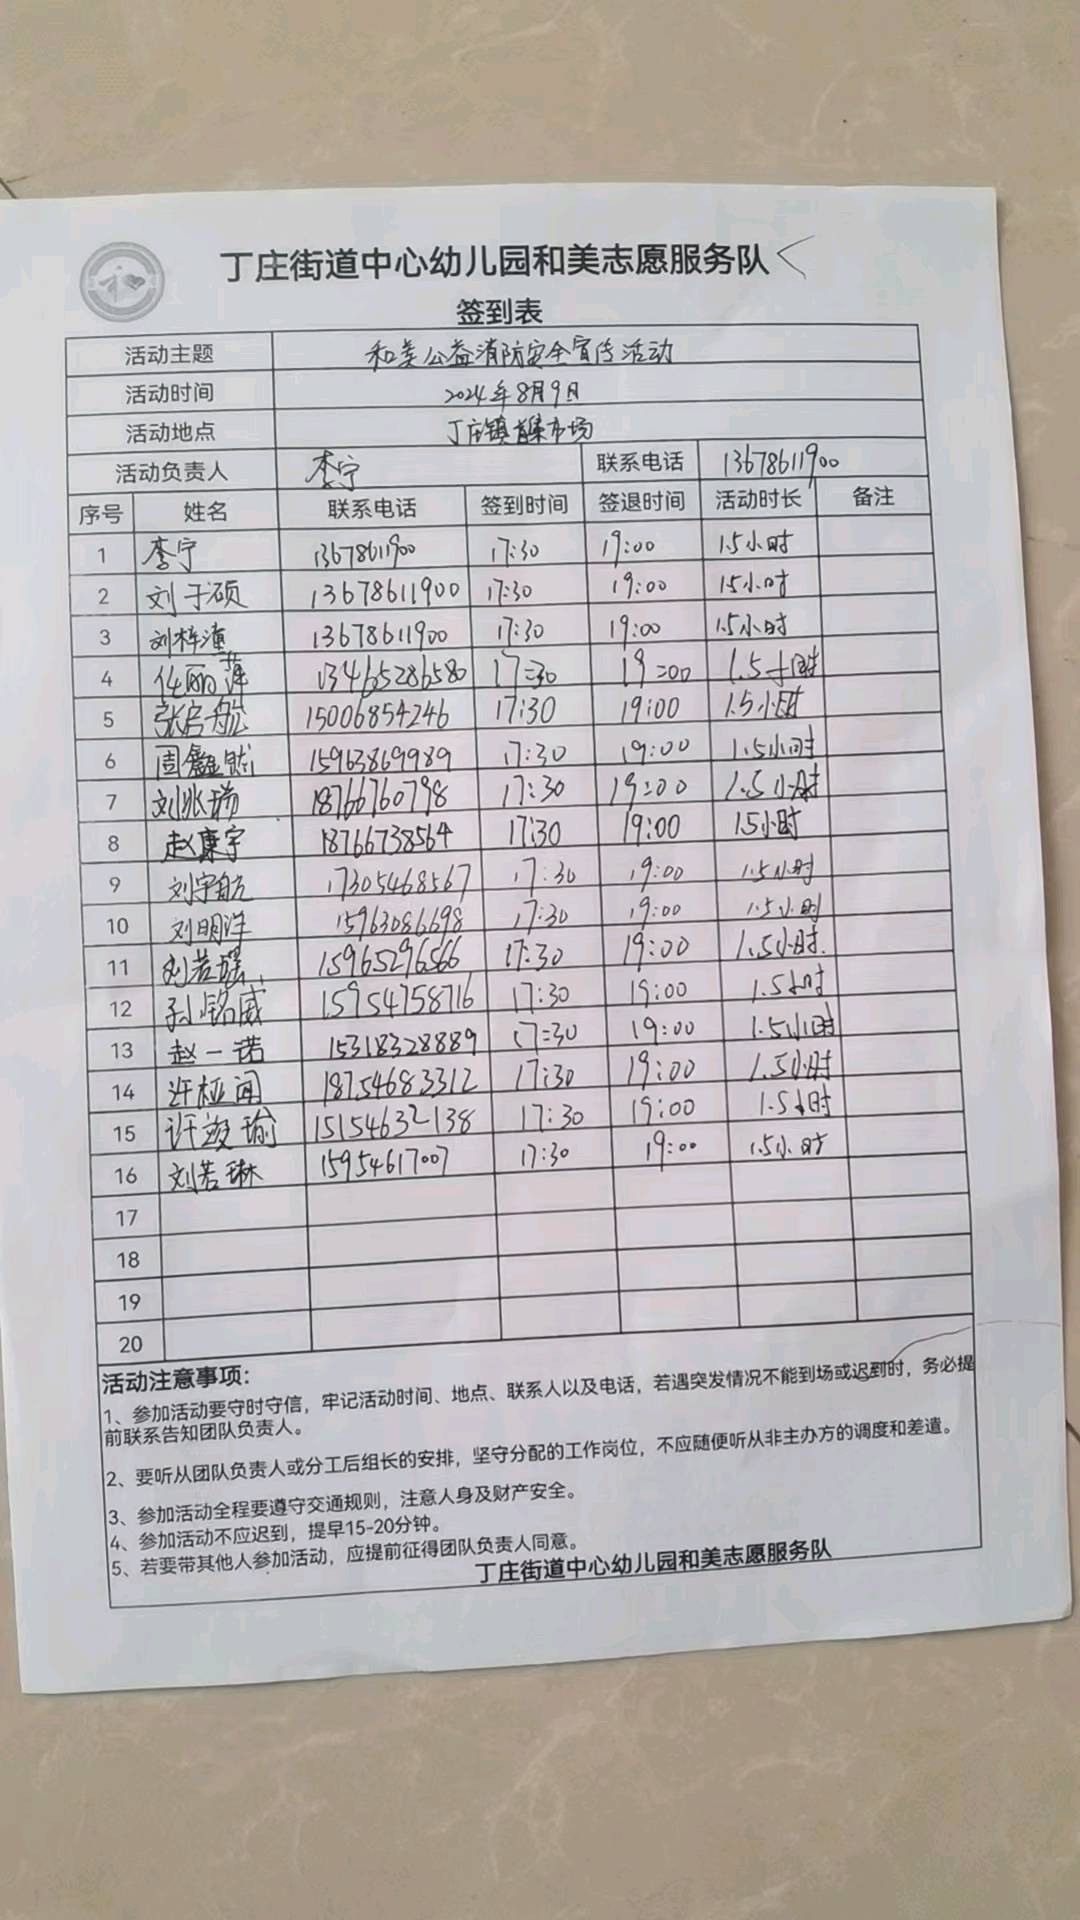 丁庄街道中心幼儿园和美志愿服务队
签到表
活动主题 和美公益消防安全宣传活动
活动时间 2024年8月9日
活动地点 丁庄镇 集市场
活动负责人 李宁 联系电话 13678611900
序号 姓名 联系电话 签到时间 签退时间 活动时长 备注
1 李宁 13678611900 17:30 19:00 1.5小时
2 刘于硕 13678611900 17:30 19:00 1.5小时
3 刘梓潼 13678611900 17:30 19:00 1.5小时
4 任丽萍 13465286580 17:30 19:00 1.5小时
5 张启航 15006854246 17:30 19:00 1.5小时
6 周鑫 15963869989 17:30 19:00 1.5小时
7 刘兆瑞 18766760798 17:30 19:00 1.5小时
8 赵康宇 18766738564 17:30 19:00 1.5小时
9 刘宇航 17305468567 17:30 19:00 1.5小时
10 刘明洋 15963086698 17:30 19:00 1.5小时
11 刘若瑶 15965296566 17:30 19:00 1.5小时
12 孙铭威 15954758716 17:30 19:00 1.5小时
13 赵一诺 15318328889 17:30 19:00 1.5小时
14 许桠闻 18754683312 17:30 19:00 1.5小时
15 许竣瑜 15154632138 17:30 19:00 1.5小时
16 刘若琳 15954617007 17:30 19:00 1.5小时
17
18
19
20
活动注意事项：
1、参加活动要守时守信，牢记活动时间、地点、联系人以及电话，若遇突发情况不能到场或迟到时，务必提
前联系告知团队负责人。
2、要听从团队负责人或分工后组长的安排，坚守分配的工作岗位，不应随便听从非主办方的调度和差遣。
3、参加活动全程要遵守交通规则，注意人身及财产安全。
4、参加活动不应迟到，提早15-20分钟。
5、若要带其他人参加活动，应提前征得团队负责人同意。
丁庄街道中心幼儿园和美志愿服务队